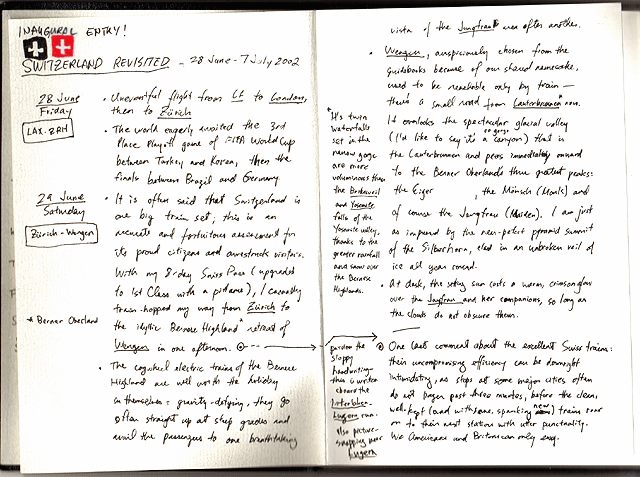 INAUGURAL ENTRY!
SWITZERLAND REVISITED - 28 June - 7 July 2002
28 June
Friday
LAX-ZRH
• Uneventful flight from LA to London,
then to Zürich
• The world eagerly awaited the 3rd
Place Playoff game of FIFA World Cup
between Turkey and Korea, then the
finals between Brazil and Germany
29 June
Saturday
Zürich-Wengen
• It is often said that Switzerland is
one big train set; this is an
accurate and fortuitous assessment for
its proud citizens and awestruck visitors.
With my 8-day Swiss Pass (upgraded
to 1st Class with a pittance), I
train-hopped my way from Zürich to
the idyllic Bernese Highland* retreat of
Wengen in one afternoon.
* Berner Oberland
• The cogwheel electric trains of the Bernese
Highland are well worth the holiday
in themselves: gravity-defying, they go
often straight up at steep grades and
avail the passengers to one breathtaking
vista of the Jungfrau area after another.
• Wengen, auspiciously chosen from the
guidebooks because of our shared namesake,
used to be reachable only by train—
there's a small road from Lauterbrunnen now.
It overlooks the spectacular glacial valley
(I'd like to say it's a canyon) that is
or gorge
the Lauterbrunnen and peers immediately onward
to the Berner Oberlands three greatest peaks:
the Eiger the Mönsch (Monk) and
of course the Jungfrau (Maiden). I am just
as impressed by the neo-perfect pyramid summit
of the Silberhorn, clad in an unbroken veil of
ice all year round.
• At dusk, the setting sun casts a warm, crimson glow
over the Jungfrau and her companions, so long as
the clouds do not obscure them.
*It's twin
waterfalls
set in the
narrow gorge
are more
voluminous than
the Bridalveil
and Yosemite
falls of the
Yosemite valley,
thanks to the
greater rainfall
and snow over
the Bernese
Highlands.
pardon the
sloppy
handwriting—
this is written
aboard the
Interlaken-
Luzern run.
also picture-
snapping near
Luzern
• One last comment about the excellent Swiss trains:
their uncompromising efficiency can be downright
intimidating, as stops at some major cities often
do not linger past three minutes, before the clean,
well-kept (and with some, spanking new) train roar
on to their next station with utter punctuality.
We Americans and Britons can only envy.